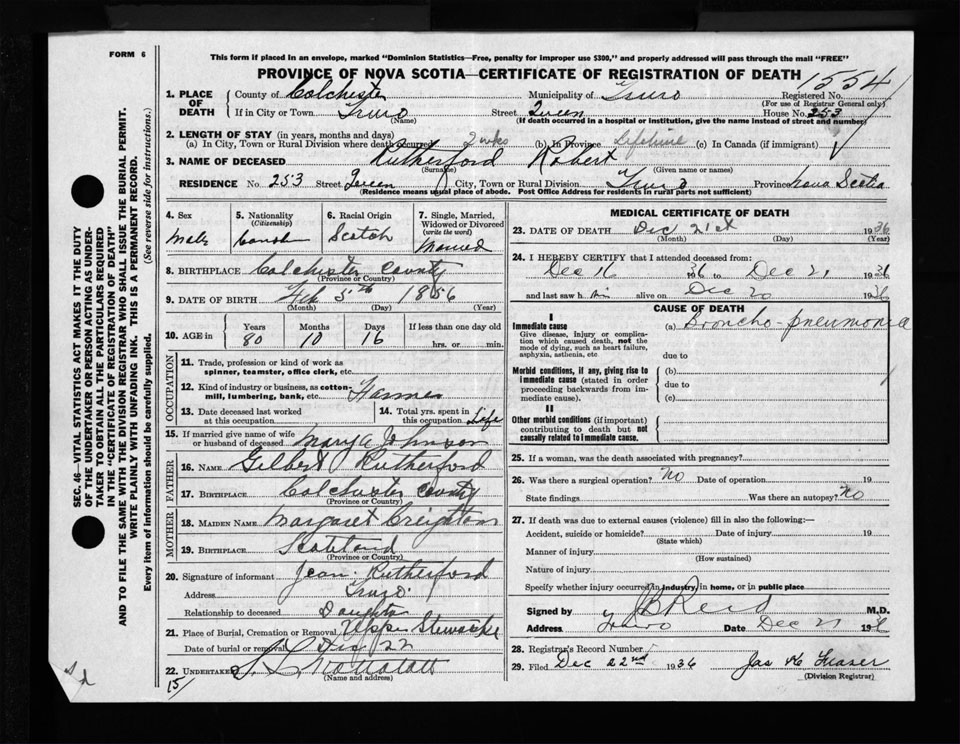 FORM 6
This form if placed in an envelope, marked "Dominion Statistics—Free, penalty for improper use $300," and properly addressed will pass through the mail "FREE"
PROVINCE OF NOVA SCOTIA—CERTIFICATE OF REGISTRATION OF DEATH
1554
1. PLACE OF DEATH County of Colchester Municipality of Truro Registered No.
(For use of Registrar General only)
If in City or Town Truro Street Queen House No. 253
(Name) (If death occurred in a hospital or institution, give the name instead of street and number)
2. LENGTH OF STAY (in years, months and days)
(a) In City, Town or Rural Division where death occurred 2 wks (b) In Province Lifetime (c) In Canada (if immigrant)
3. NAME OF DECEASED Rutherford Robert
(Surname) (Given name or names)
RESIDENCE No. 253 Street Queen City, Town or Rural Division Truro Province Nova Scotia
(Residence means usual place of abode. Post Office Address for residents in rural parts not sufficient)
SEC. 46—VITAL STATISTICS ACT MAKES IT THE DUTY
OF THE UNDERTAKER OR PERSON ACTING AS UNDER-
TAKER TO OBTAIN ALL THE PARTICULARS REQUIRED
IN THE "CERTIFICATE OF REGISTRATION OF DEATH"
AND TO FILE THE SAME WITH THE DIVISION REGISTRAR WHO SHALL ISSUE THE BURIAL PERMIT.
WRITE PLAINLY WITH UNFADING INK. THIS IS A PERMANENT RECORD.
Every item of information should be carefully supplied. (See reverse side for instructions.)
4. Sex Male
5. Nationality (Citizenship)
6. Racial Origin Scotch
7. Single, Married, Widowed or Divorced (write the word) Married
8. BIRTHPLACE Colchester County
(Province or Country)
9. DATE OF BIRTH Feb 5th 1856
(Month) (Day) (Year)
10. AGE in Years 80 Months 10 Days 16 If less than one day old hrs. or min.
OCCUPATION
11. Trade, profession or kind of work as spinner, teamster, office clerk, etc.
12. Kind of industry or business, as cotton-mill, lumbering, bank, etc. Farmer
13. Date deceased last worked at this occupation
14. Total yrs. spent in this occupation Life
15. If married give name of wife or husband of deceased Mary A Johnson
FATHER
16. NAME Gilbert Rutherford
17. BIRTHPLACE Colchester County
(Province or Country)
MOTHER
18. MAIDEN NAME Margaret Creighton
19. BIRTHPLACE Scotland
(Province or Country)
20. Signature of informant Jean Rutherford
Address Truro
Relationship to deceased Daughter
21. Place of Burial, Cremation or Removal Upper Stewiacke
Date of burial or removal 22
22. UNDERTAKER
(Name and address)
15
MEDICAL CERTIFICATE OF DEATH
23. DATE OF DEATH Dec 21st 1936
(Month) (Day) (Year)
24. I HEREBY CERTIFY that I attended deceased from:
Dec 16 36 to Dec 21 1936
and last saw him alive on Dec 20 1936
CAUSE OF DEATH
I
Immediate cause (a) Broncho-pneumonia
Give disease, injury or complication which caused death, not the mode of dying, such as heart failure, asphyxia, asthenia, etc
due to
Morbid conditions, if any, giving rise to immediate cause (stated in order proceeding backwards from immediate cause).
(b)
due to
(c)
II
Other morbid conditions (if important) contributing to death but not causally related to immediate cause.
25. If a woman, was the death associated with pregnancy?
26. Was there a surgical operation? No Date of operation 19
State findings Was there an autopsy? No
27. If death was due to external causes (violence) fill in also the following:—
Accident, suicide or homicide? Date of injury 19
(State which)
Manner of injury
(How sustained)
Nature of injury
Specify whether injury occurred in industry, in home, or in public place
Signed by J B Reid M.D.
Address Truro Date Dec 21 1936
28. Registrar's Record Number
29. Filed Dec 22nd 1936 Jas K Fraser
(Division Registrar)